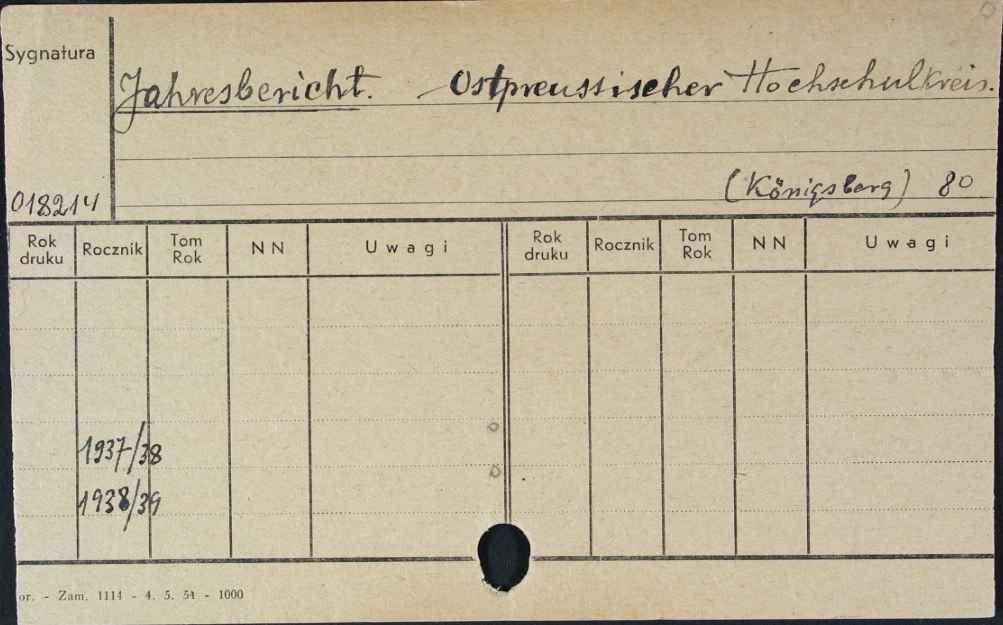 Sygnatura
Jahresbericht. - Ostpreussischer Hochschulkreis.
(Königsberg) 80
018214
Rok druku Rocznik Tom Rok N N Uwagi Rok druku Rocznik Tom Rok N N Uwagi
1937/38
1938/39
or. - Zam. 1114 - 4. 5. 54 - 1000